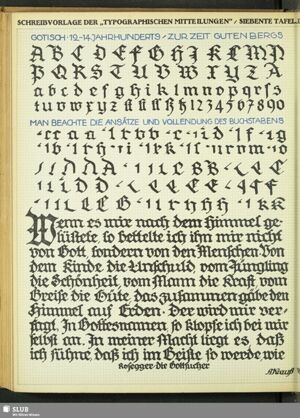 SCHREIBVORLAGE DER „TYPOGRAPHISCHEN MITTEILUNGEN" / SIEBENTE TAFEL
GOTISCH · 12.-14. JAHRHUNDERTS / ZUR ZEIT GUTENBERGS
A B C D E F G H I K L M P
P Q R S T U V W X Y Z A
a b c d e f g h i j k l m n o p q r s
t u v w x y z 1 2 3 4 5 6 7 8 9 0
MAN BEACHTE DIE ANSÄTZE UND VOLLENDUNG DES BUCHSTABENS
Wenn es mir nach dem Himmel ge-
lüstete, so bettelte ich ihn mir nicht
von Gott, sondern von den Menschen: Von
dem Kinde die Unschuld, vom Jüngling
die Schönheit, vom Mann die Kraft, vom
Greise die Güte, das zusammen gäbe den
Himmel auf Erden. Der wird mir ver-
sagt. In Gottesnamen, so klopfe ich bei mir
selbst an. In meiner Macht liegt es, daß
ich führe, daß ich im Geiste so werde wie
Rosegger · Die Gottsucher
SLUB